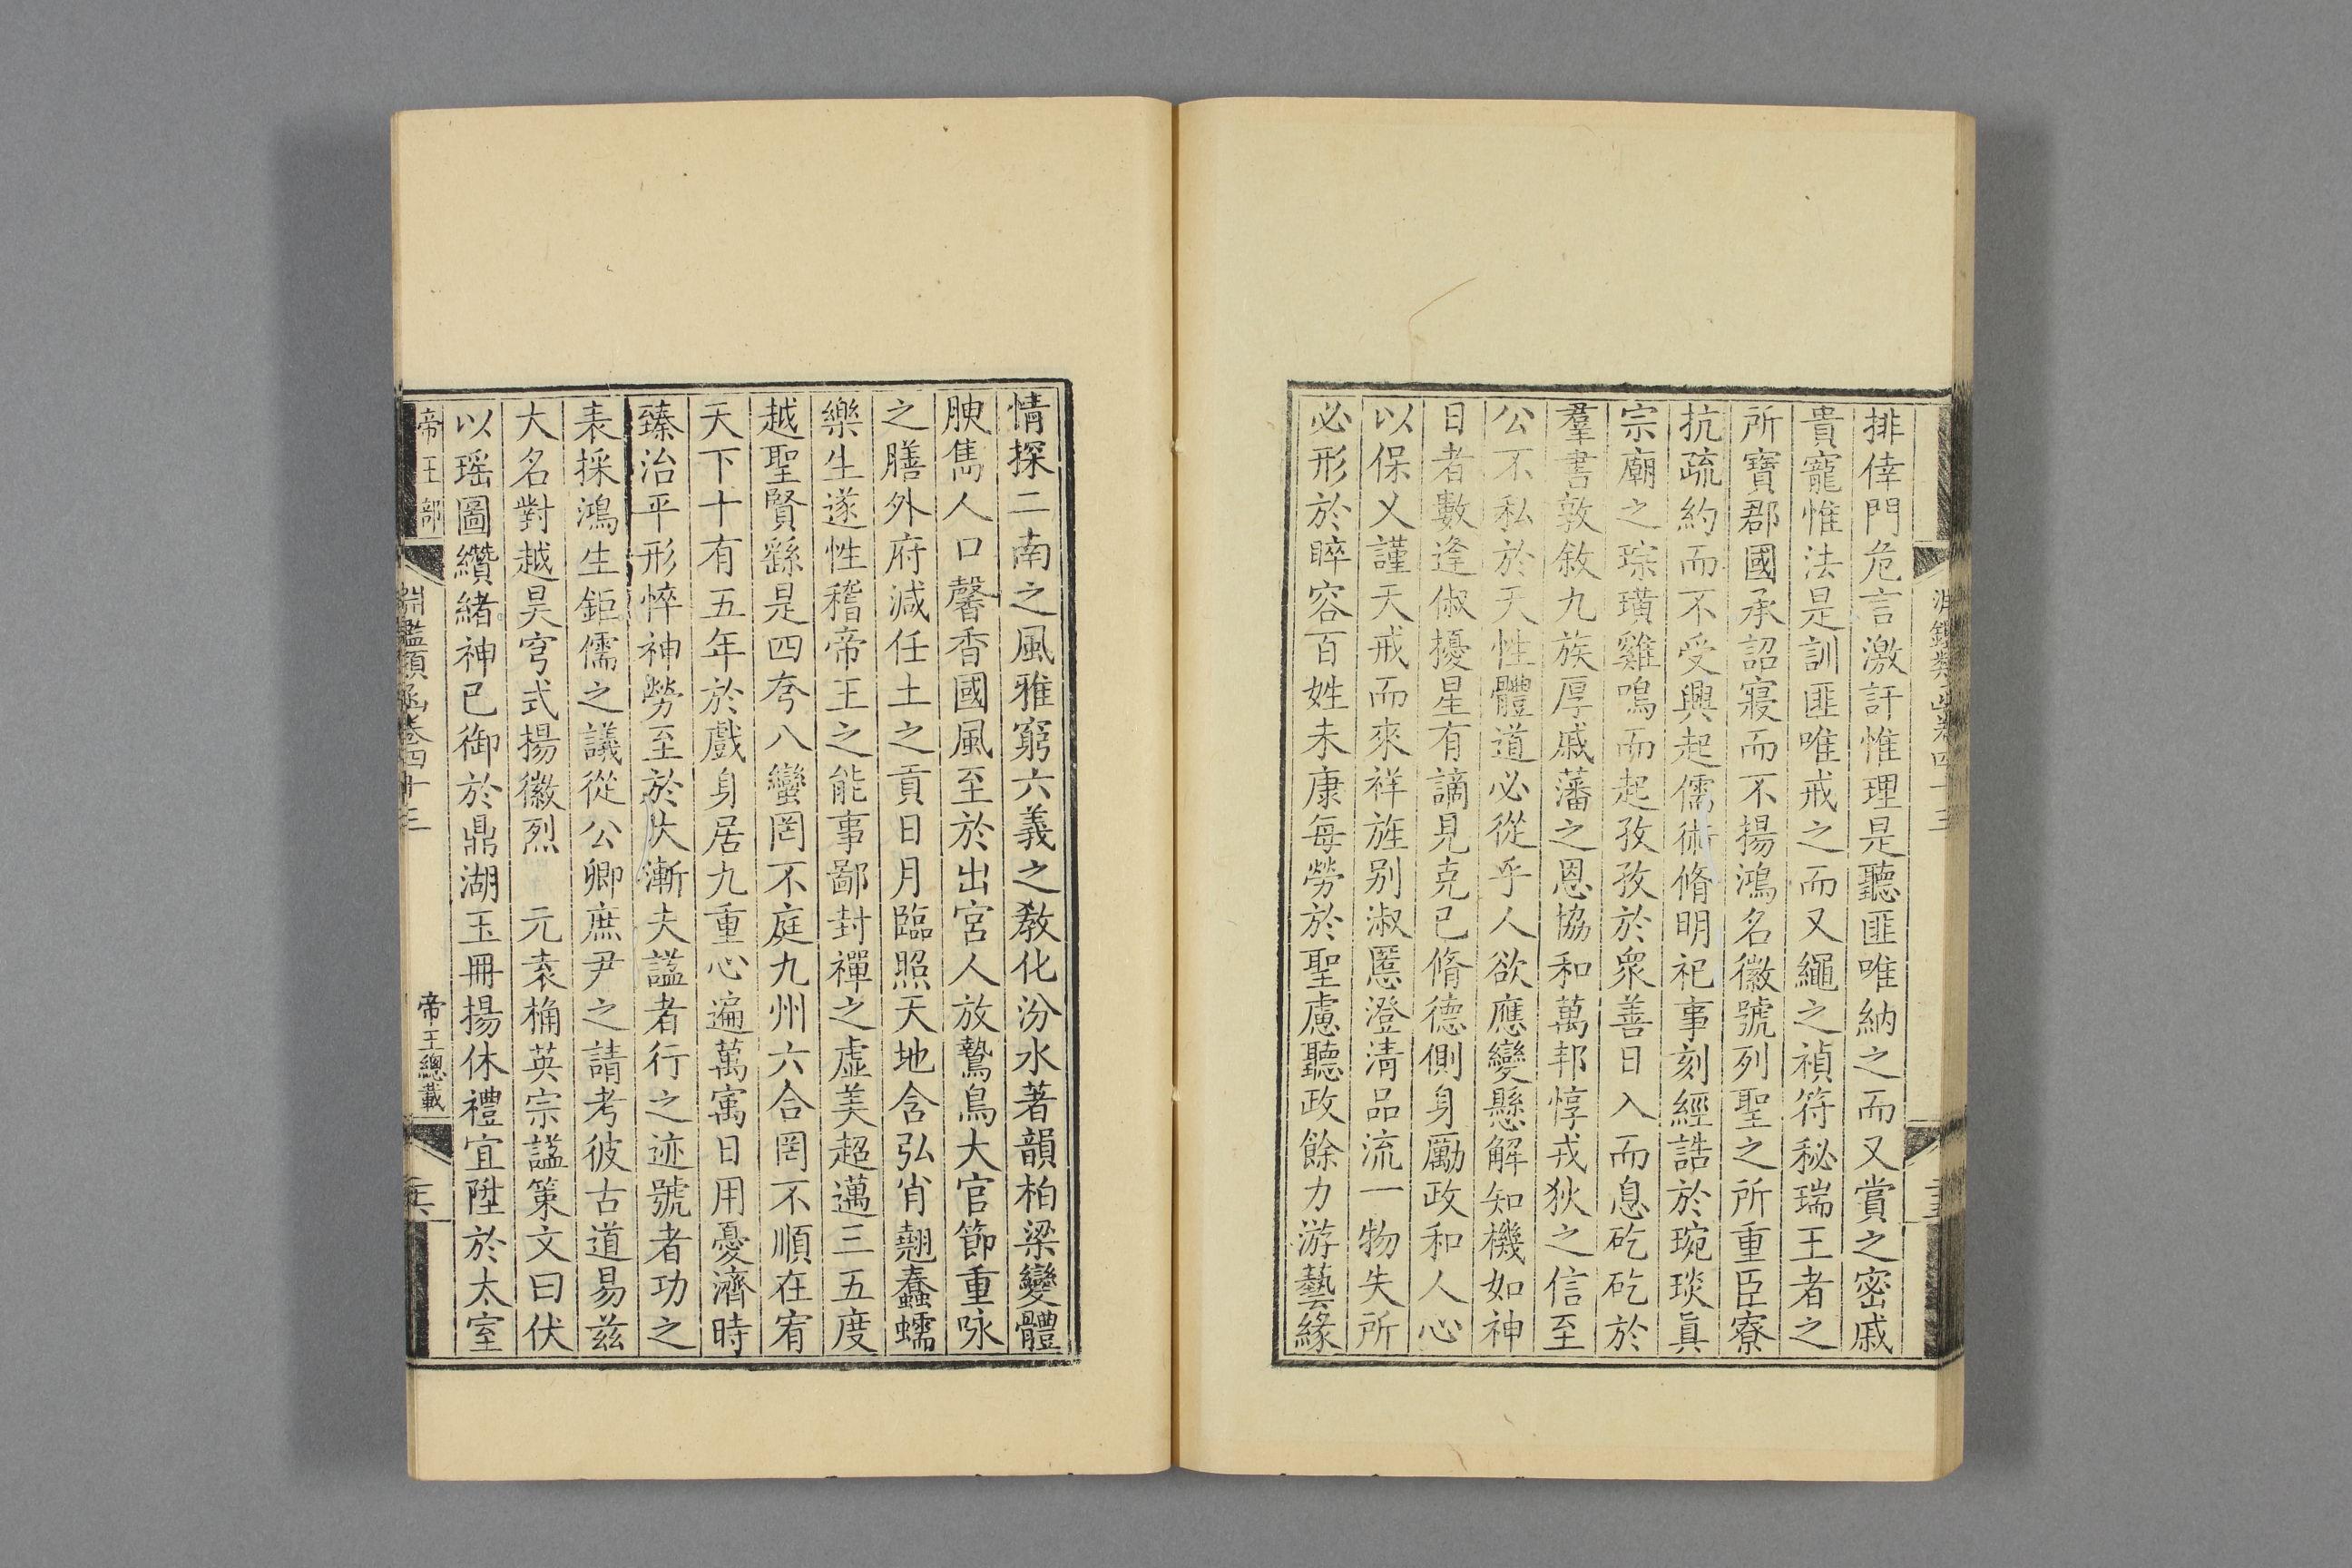 淵鑑類函卷四十三
排倖門危言激訐惟理是聽匪唯納之而又賞之密戚
貴寵惟法是訓匪唯戒之而又繩之禎符秘瑞王者之
所寶郡國承詔寢而不揚鴻名徽號列聖之所重臣寮
抗疏約而不受興起儒術脩明祀事刻經誥於琬琰眞
宗廟之琮璜雞鳴而起孜孜於衆善日入而息矻矻於
羣書敦敘九族厚戚藩之恩協和萬邦惇戎狄之信至
公不私於天性體道必從乎人欲應變懸解知機如神
日者數逢俶擾星有謫見克己脩德側身勵政和人心
以保乂謹天戒而來祥旌别淑慝澄淸品流一物失所
必形於睟容百姓未康每勞於聖慮聽政餘力游藝緣
情探二南之風雅窮六義之敎化汾水著韻柏梁變體
腴雋人口馨香國風至於出宮人放鷙鳥大官節重咏
之膳外府減任土之貢日月臨照天地含弘肖翹蠢蠕
樂生遂性稽帝王之能事鄙封禪之虛美超邁三五度
越聖賢繇是四夸八蠻罔不庭九州六合罔不順在宥
天下十有五年於戲身居九重心遍萬寓日用憂濟時
臻治平形悴神勞至於大漸夫謚者行之迹號者功之
表採鴻生鉅儒之議從公卿庶尹之請考彼古道易兹
大名對越昊穹式揚徽烈　元袁桷英宗謚策文曰伏
以瑶圖纘緒神已御於鼎湖玉冊揚休禮宜陞於太室
帝王部　淵鑑類函卷四十三　帝王總載　六